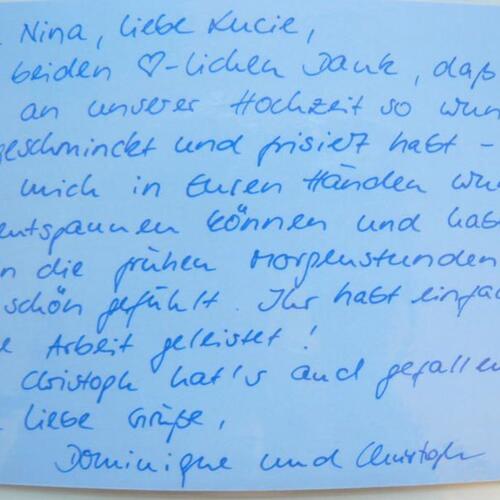 Nina, liebe Lucie,
beiden ♡-lichen Dank, daß
an unserer Hochzeit so wun
geschminckt und frisiert habt -
mich in Euren Händen wun
entspannen können und hab
n die frühen Morgenstunden
schön gefühlt. Ihr habt einfac
e Arbeit geleistet!
Christoph hat's auch gefallen
liebe Grüße,
Dominique und Christoph